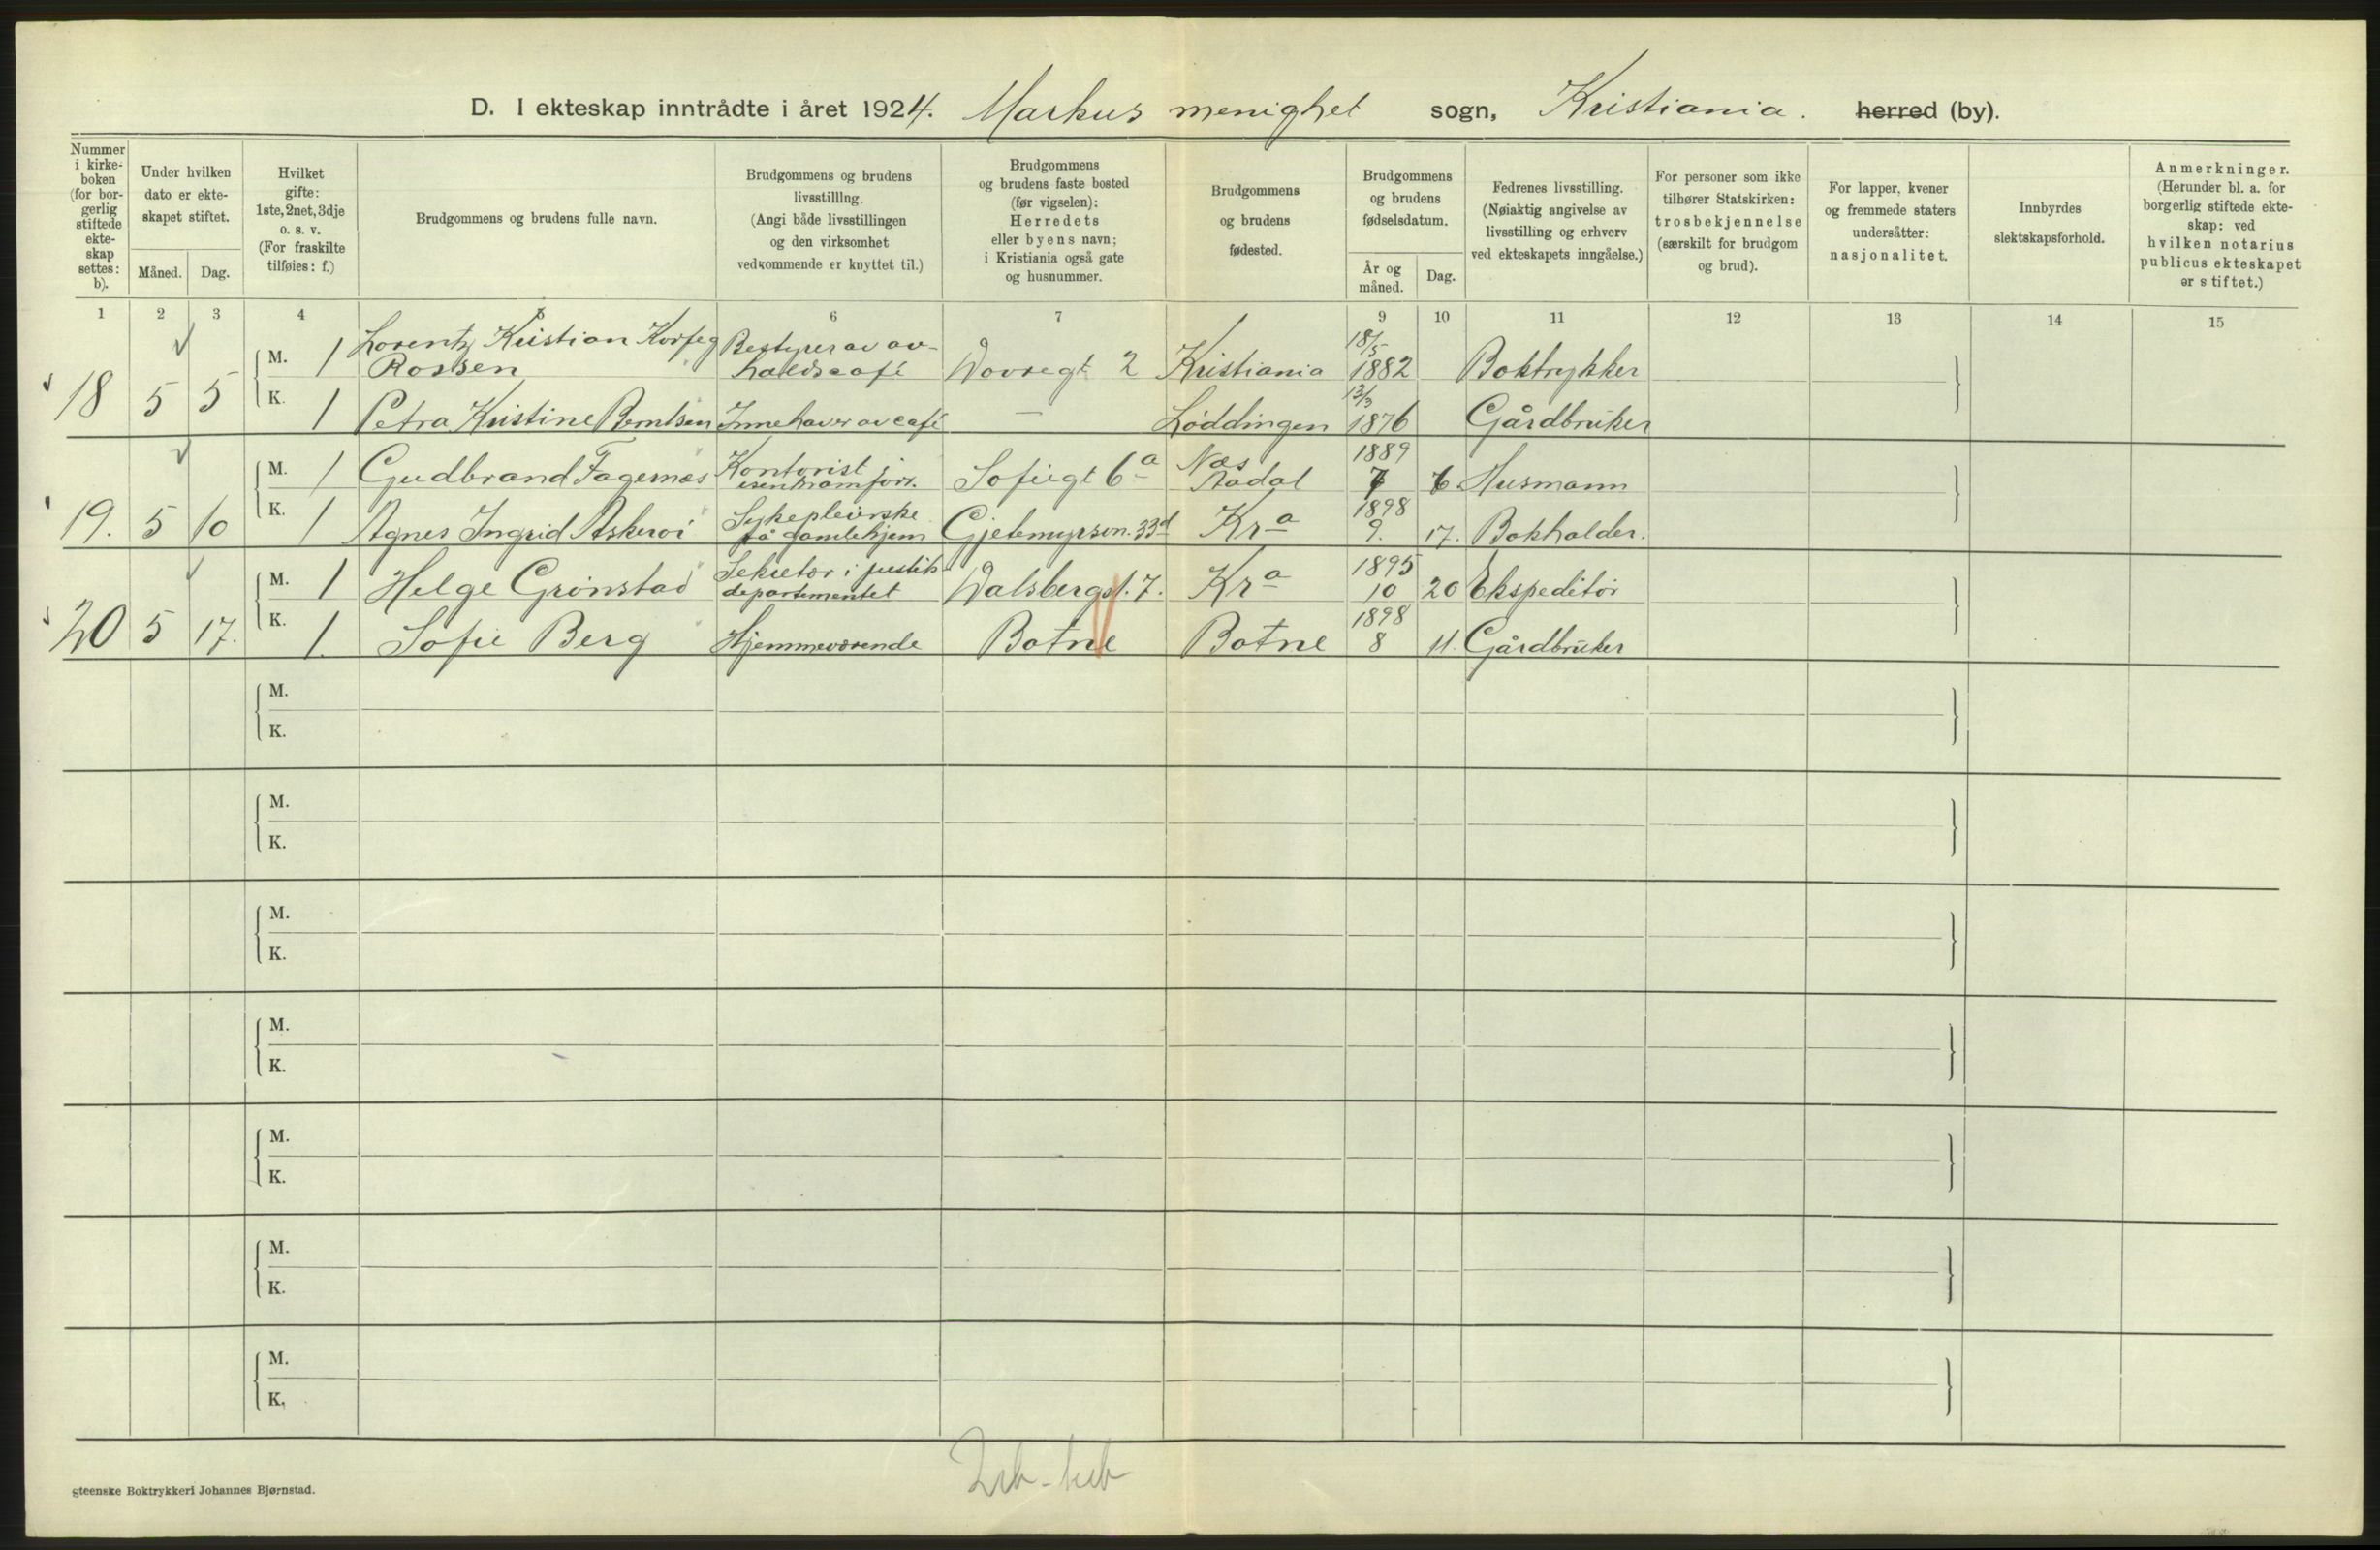 D. I ekteskap inntrådte i året 1924. Markus menighet sogn, Kristiania. herred (by).
Nummer
i kirke-
boken
(for bor-
gerlig
stiftede
ekte-
skap
settes:
b).
Under hvilken
dato er ekte-
skapet stiftet.
Måned. Dag.
Hvilket
gifte:
1ste, 2net, 3dje
o. s. v.
(For fraskilte
tilføies: f.)
Brudgommens og brudens fulle navn.
Brudgommens og brudens
livsstilling.
(Angi både livsstillingen
og den virksomhet
vedkommende er knyttet til.)
Brudgommens
og brudens faste bosted
(før vigselen):
Herredets
eller byens navn;
i Kristiania også gate
og husnummer.
Brudgommens
og brudens
fødested.
Brudgommens
og brudens
fødselsdatum.
År og
måned.
Dag.
Fedrenes livsstilling.
(Nøiaktig angivelse av
livsstilling og erhverv
ved ekteskapets inngåelse.)
For personer som ikke
tilhører Statskirken:
trosbekjennelse
(særskilt for brudgom
og brud).
For lapper, kvener
og fremmede staters
undersåtter:
nasjonalitet.
Innbyrdes
slektskapsforhold.
Anmerkninger.
(Herunder bl. a. for
borgerlig stiftede ekte-
skap: ved
hvilken notarius
publicus ekteskapet
er stiftet.)
1 2 3 4 5 6 7 9 10 11 12 13 14 15
18 5 5
M. 1 Lorentz Kristian
Rossen
Bestyrer av av-
holdscafé
Dovregt 2 Kristiania
18/5
1882
Boktrykker
K. 1 Petra Kristine Berntsen Innehaver av café — Løddingen
13/3
1876
Gårdbruker
19. 5 10
M. 1 Gudbrand Fagernæs
Kontorist i
Sofiegt 6a
Næs
Aadal
1889
7 6 Husmann
K. 1 Agnes Ingrid Askerøi
Sykepleierske
på gamlehjem
Gjetemyrsvn. 33d Kra
1898
9. 17. Bokholder.
20 5 17.
M. 1 Helge Grönstad
Sekretær i justits
departementet
Walsbergst. 7. Kra
1895
10 20 Ekspeditör
K. 1. Sofie Berg Hjemmeværende Botne Botne
1898
8 11. Gårdbruker
M.
K.
M.
K.
M.
K.
M.
K.
M.
K.
M.
K.
M.
K.
gteenske Boktrykkeri Johannes Bjørnstad.